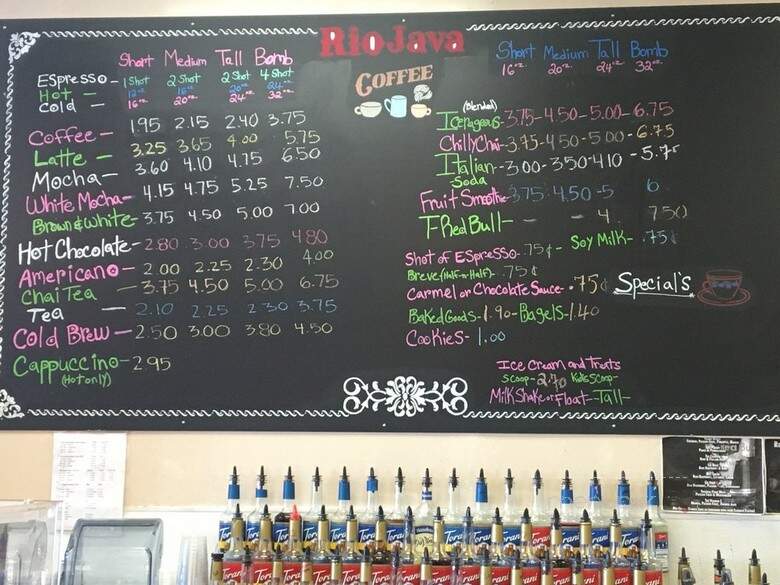 Rio Java
COFFEE
Short Medium Tall Bomb
Espresso - 1 Shot 2 Shot 2 Shot 4 Shot
Hot - 12oz 16oz 20oz 24oz
Cold - 16oz 20oz 24oz 32oz
Coffee - 1.95 2.15 2.40 3.75
Latte - 3.25 3.65 4.00 5.75
Mocha - 3.60 4.10 4.75 6.50
White Mocha - 4.15 4.75 5.25 7.50
Brown & White - 3.75 4.50 5.00 7.00
Hot Chocolate - 2.80 3.00 3.75 4.80
Americano - 2.00 2.25 2.30 4.00
Chai Tea - 3.75 4.50 5.00 6.75
Tea - 2.10 2.25 2.30 3.75
Cold Brew - 2.50 3.00 3.80 4.50
Cappuccino - 2.95
(Hot only)
Short Medium Tall Bomb
16oz 20oz 24oz 32oz
(Blended)
Icepageous - 3.75 - 4.50 - 5.00 - 6.75
Chilly Chai - 3.75 - 4.50 - 5.00 - 6.75
Italian - 3.00 - 3.50 - 4.10 - 5.75
Soda
Fruit Smoothie 3.75 4.50 - 5 6
T-Red Bull - - - 4. 7.50
Shot of Espresso .75¢ - Soy Milk - .75¢
Breve (Half-n-Half) - .75¢
Carmel or Chocolate Sauce - .75¢ Special's
Baked Goods - 1.90 - Bagels - 1.40
Cookies - 1.00
Ice Cream and Treats
Scoop - 2.70 Kids Scoop -
Milk Shake or Float - Tall -
Torani Torani Torani Torani Torani Torani